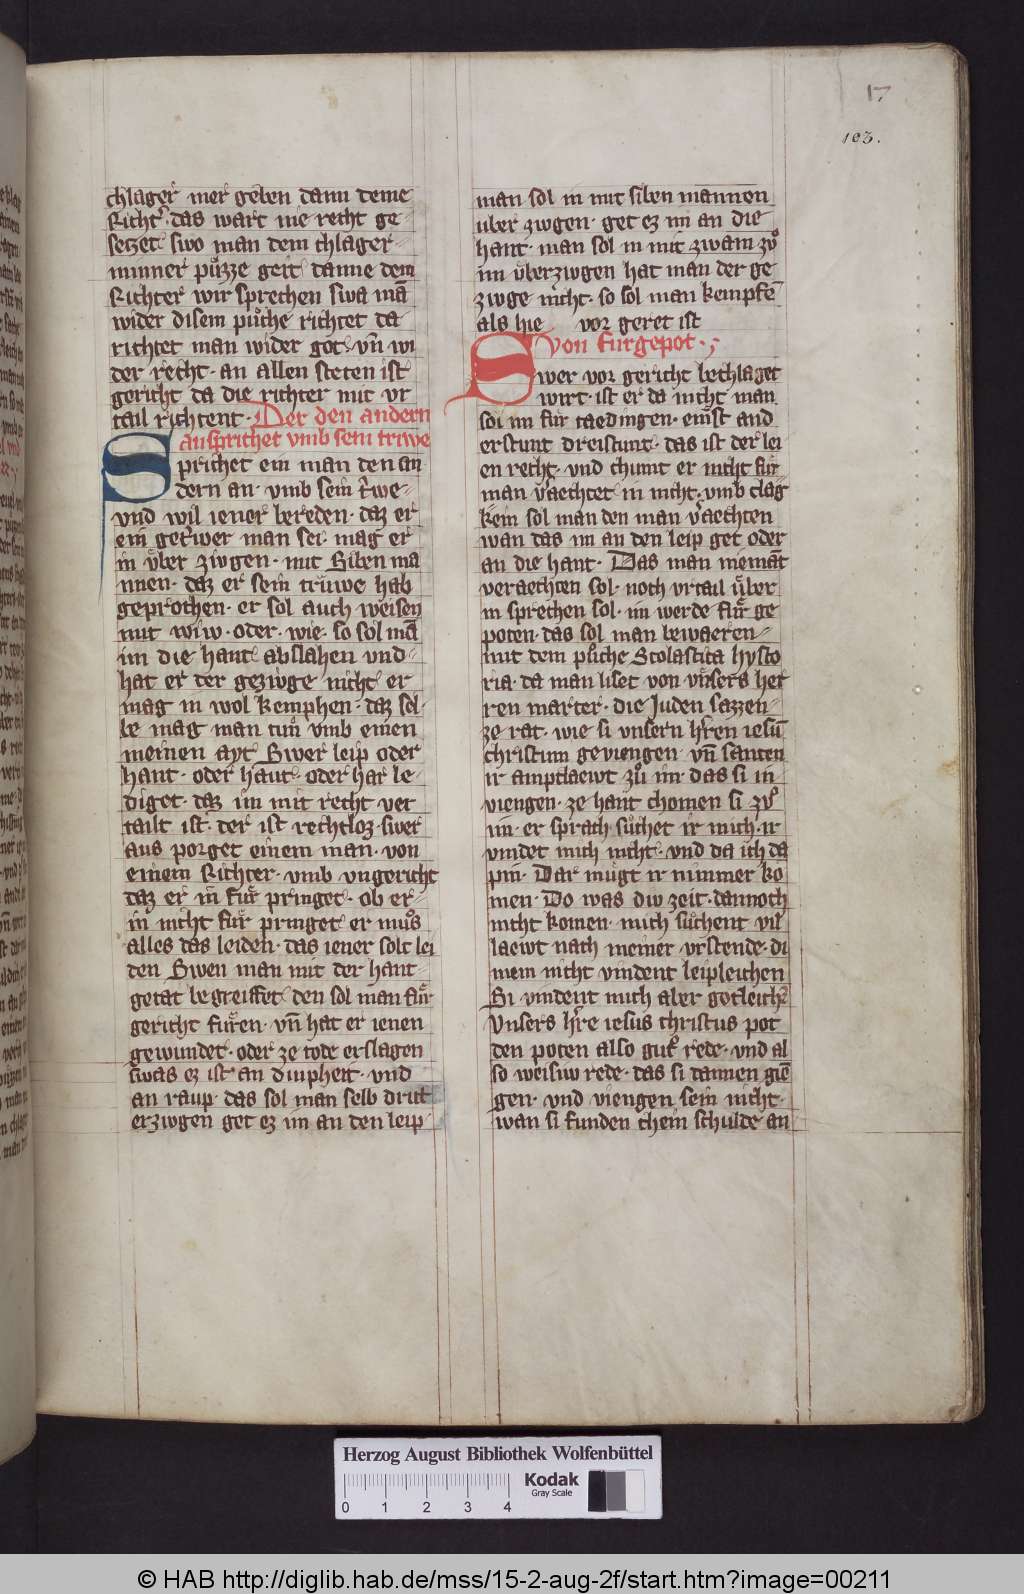 17
103.
chlager mer geben dann deme
Richt͛ · das wart nie recht ge⸗
setzet swo man dem chlager⸗
minner pͦuzze geit danne dem
Richter wir sprechen swa mā
wider disem pͦuche richtet da
richtet man wider got · vn̄ wi
der recht · an allen steten ist
gericht da die richter mit vr
tail richtent · Der den andern
ansprichet vmb sein triwe
Sprichet ein man den an
dern an · vmb sein tr͛we⸗
vnd wil iener bereden · daz er
ein getr͛wer man sei · mag er
in vͤber zwgen · mit Siben ma
nnen · daz er sein trúwe hab
geprochen · er sol auch weisen
mit wiw · oder · wie · so sol mā
im die hant abslahen vnd⸗
hat er der gezwge nicht er
mag in wol kemphen · daz sel⸗
be mag man tuͦn vmb einen
meinen ayt Swer leip oder
hant · oder haut · oder har le⸗
diget · daz im mit recht ver
tailt ist · der ist rechtloz · swer
aus porget einem man · von
einem Richter · vmb vngericht
daz er in fuͤr pringet · ob er⸗
in nicht fuͤr pringet er mͦus
alles das leiden · das iener solt lei
den Swen man mit der hant⸗
getat begreiffet den sol man fuͤr
gericht fuͤren · vn̄ hat er ienen
gewundet · oder ze tode erslagen
swas ez ist an diupheit · vnd
an raup · das sol man selb dritt
erzwgen get ez im an den leip ·
man sol in mit siben mannen
vber zwgen · get ez im an die
hant · man sol in mit zwain zͦu
im vͤberzwgen hat man der ge
zwge nicht · so sol man kempfē
als hie vor geret ist
Von furgepot ·
Swer vor gericht bechlaget
wirt · ist er da nicht man
sol im fuͤr taedingen · einst and
erstunt dreistunt · das ist der lei
en recht · vnd chumt er nicht fuͤr
man v͛aechtet in nicht · vmb clag
kein sol man den man v͛aechten
wan das im an den leip get oder
an die hant · Das man niemāt
veraechten sol · noch vrtail vͤber
in sprechen sol · im werde fuͤr ge
poten · das sol man bewaeren⸗
mit dem pͦuche Scolastica hysto
ria · da man liset von vnsers her
ren marter · die Juden sazzen⸗
ze rat · wie si vnsern h͛ren iesū
christum geviengen · vn̄ santen
ir amptlaewt zͦu im · das si in
viengen · ze hant chomen si zͦu
im · er sprach sͦuchet ir mich · ir
vindet mich nicht · vnd da ich da
pin · Dar mugt ir nimmer ko
men · Do was diw zeit · dannoch
nicht komen · mich suͦchent vil
laewt nach meiner vrstende · di
mein nicht vindent leipleichen
Si vindent mich aber gotleich͛
Vnsers h͛re iesus christus pot
den poten also gut͛ rede · vnd al
so weisiw rede · das si dannen giē
gen · vnd viengen sein nicht ·
wan si funden chein schulde an
Herzog August Bibliothek Wolfenbüttel
Kodak
Gray Scale
0 1 2 3 4
© HAB http://diglib.hab.de/mss/15-2-aug-2f/start.htm?image=00211